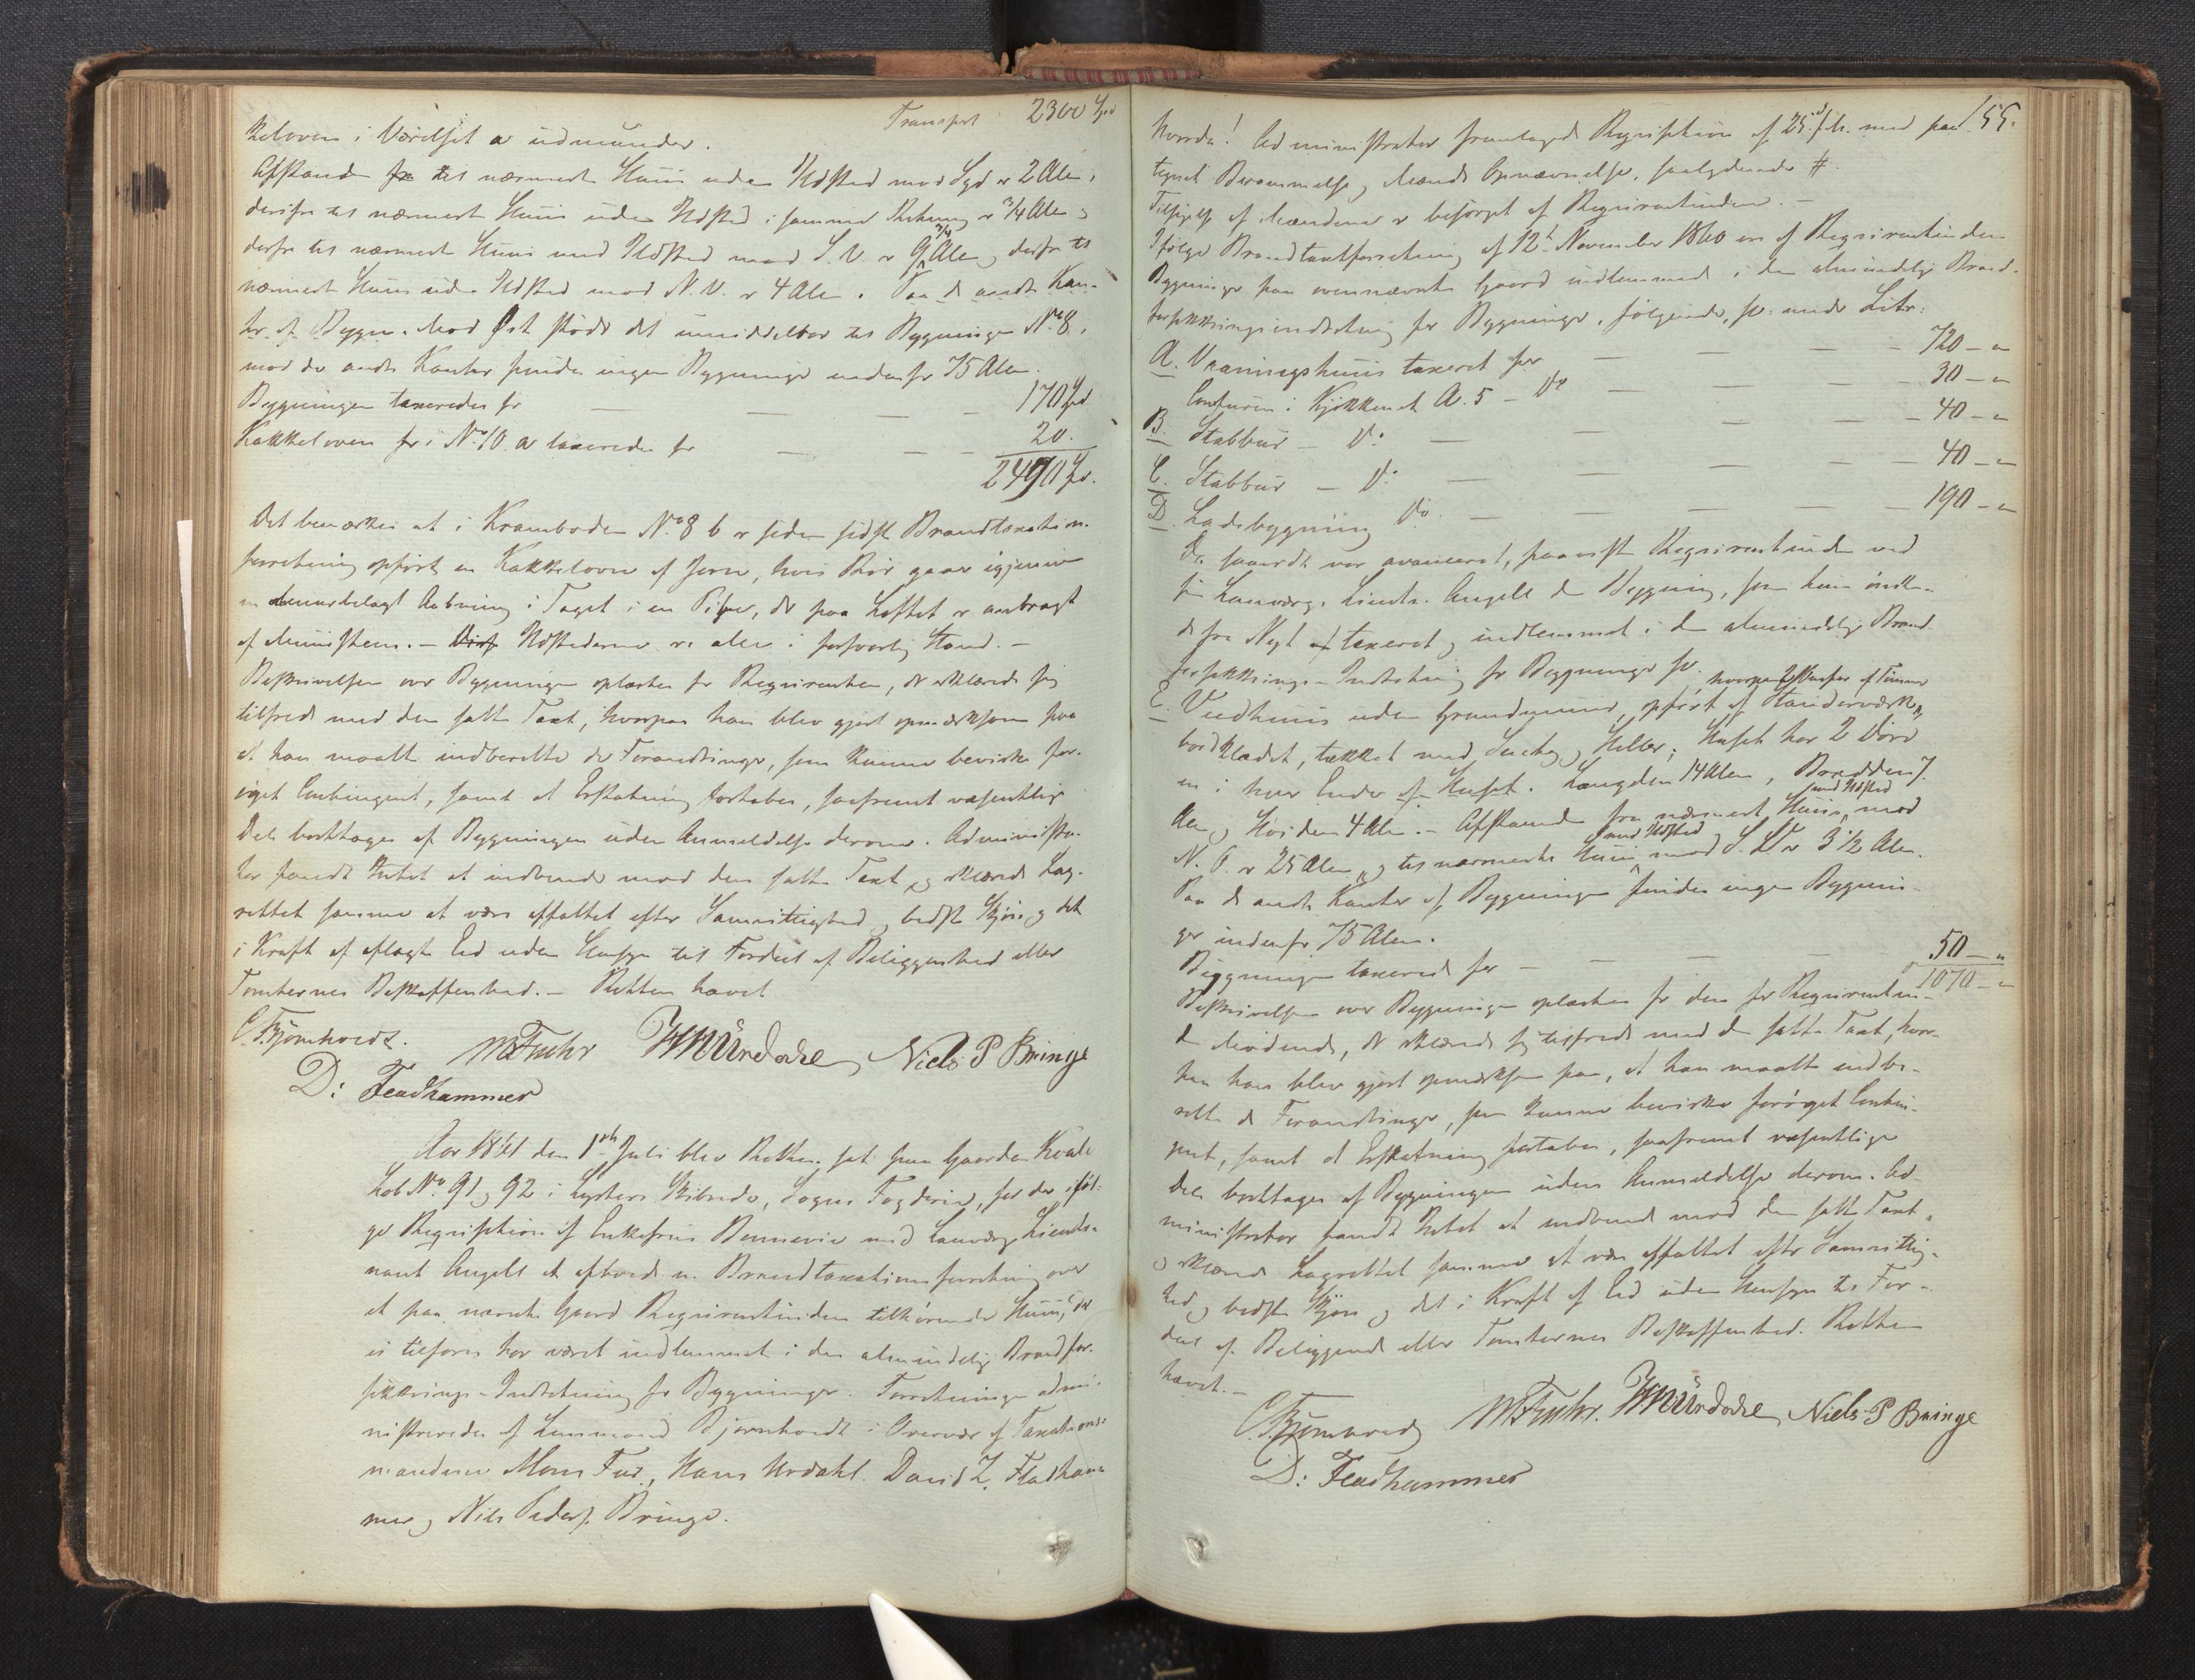 Transport 2300 Spd
kelovn i Værelset a udmunder.
Afstanden fra til nærmeste Huus uden Ildsted mod Syd er 2 Alen,
derifra til nærmeste Huus uden Ildsted i samme Retning er 3/4 Alen og
derfra til nærmeste Huus med Ildsted mod S.V. er 9 3/4 Alen, derfra til
nærmeste Huus uden Ildsted mod N.V. er 4 Alen. Paa de andre Kan-
ter af Bygn. Mod Øst støder det umiddelbar til Bygningen No 8,
mod de andre Kanter findes ingen Bygninger indenfor 75 Alen.
Bygningen taxeredes for — — — 170 Spd
Kakkelovnen i No 10. a taxeredes for — — — 20.
2490 Spd.
Det bemærkes at i Kramboden No 8 b er siden sidste Brandtaxations-
forretning opført en Kakkelovn af Jern, hvis Rør gaar igjennem
en steenbelagt Aabning i Taget i en Pibe, der paa Loftet er anbragt
af Muursteen. — Disse Ildstederne ere alle i forsvarlig Stand. —
Beskrivelsen over Bygningen oplæstes for Requirenten, der erklærede sig
tilfreds med den satte Taxt, hvorpaa han blev gjort opmærksom paa
at han maatte indberette de Forandringer, som kunne bevirke for-
øget Contingent, samt at Erstatning fortabes, saafremt væsentlige
Dele borttages af Bygningen uden Anmeldelse derom. Administra-
tor fandt Intet at indvende mod den satte Taxt, og erklærede Lag-
rettet samme at være affattet efter Samvittighed og bedste Skjøn og det
i Kraft af aflagt Eed uden Hensyn til Fordeel af Beliggenhed eller
Tomternes Beskaffenhed. — Retten hævet
C. Bjørnhordt. M Fuhr H M Urdahl Niels P Bringe
D: Fladhammer
Aar 1861 den 1ste Juli blev Retten sat paa Gaarden Kvale
Løb No 91 og 92 i Lysters Skibrede, Sogns Fogderie, for der ifølge
Requisition af Enkefrue Bennevie med Laugværge Lieute-
nant Angell at afholde en Brandtaxationsforretning over
et paa nævnte Gaard Requirentinden tilhørende Huus, der
ei tilforn har været indlemmet i den almindelige Brandfor-
sikrings-Indretning for Bygninger. Forretningen admi-
nistreredes af Lensmand Bjørnhordt i Overvær af Taxations-
mændene Mons Fur, Hans Urdahl. David Z. Fladham-
mer og Niels Peders. Bringe.
155.
Hvorda! Administrator fremlagde Requisition af 25de f. M. med paa-
tegnet Berammelse og Mænds Opnævnelse, saalydende #.
Tilsigelse af Mændene er besørget af Requirentinden. —
Ifølge Brandtaxtforretning af 12te November 1860 ere af Requirentindens
Bygninger paa ovennævnte Gaard indlemmede i den almindelige Brand-
forsikringsindretning for Bygninger, følgende, som under Litr:
A. Vaaningshuus taxeret for — — — 720 – "
Comfuren i Kjøkkenet A. 5 – Do — — — 30 – "
B. Stabbur – Do — — — 40 – "
C. Stabbur – Do — — — 40 – "
D. Ladebygning Do — — — 190 – "
Da saaledes var avanceret, paaviste Requirentinden ved
sin Laugværge Lieutn. Angell den Bygning, som hun ønske-
de fra Nyt af taxeret og indlemmet i den almindelige Brand-
forsikrings-Indretning for Bygninger
E. Vedhuus uden Grundmuur, opført af Standerværk,
bordklædet, tækket med Suetag og Heller; Huset har 2 Døre
en i hver Ende af Huset. Længden 14 Alen, Bredden 7
Alen og Høiden 4 Alen. — Afstanden fra nærmeste Huus med Ildsted mod
N.O. er 25 Alen, og til nærmeste Huus med Ildsted mod S.O. er 3 1/2 Alen.
Paa de andre Kanter af Bygningen findes ingen Bygnin-
ger indenfor 75 Alen.
Bygningen taxeredes for — — — 50 – "
1070 – "
Beskrivelsen over Bygningen oplæstes for den for Requirentin-
den Mødende, der erklærede sig tilfreds med den satte Taxt, hvor-
paa han blev gjort opmærksom paa, at han maatte indbe-
rette de Forandringer, som kunne bevirke forøget Contin-
gent, samt at Erstatning fortabes, saafremt væsentlige
Dele borttages af Bygningen uden Anmeldelse derom. Ad-
ministrator fandt Intet at indvende mod den satte Taxt,
og erklærede Lagrettet samme at være affattet efter Samvittig-
hed og bedste Skjøn og det i Kraft af Eed uden Hensyn til For-
deel af Beliggende eller Tomternes Beskaffenhed. Retten
hævet. —
C. Bjørnhordt M Fuhr. H M Urdahl Niels P Bringe
D: Fladhammer